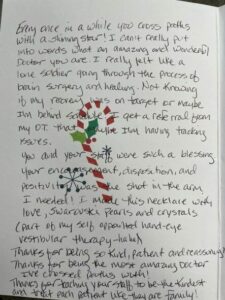 Every once in a while you cross paths
with a shining star! I can't really put
into words what an amazing and wonderful
Doctor you are. I really felt like a
lone soldier going through the process of
brain surgery and healing. Not knowing
if my recovery is on target or maybe
I'm behind schedule I get a referral from
my O.T. that maybe I'm having tracking
issues.
You and your staff were such a blessing
Your encouragement, disposition, and
positivity was the shot in the arm
I needed! I made this necklace with
love, Swarovski pearls and crystals
(part of my self appointed hand-eye
vestibular therapy-haha)
Thanks for being so kind, patient and reassuring!
Thanks for being the most amazing doctor
I've crossed paths with!
Thanks for teaching your staff to be the kindest
and treat each patient like they are family!